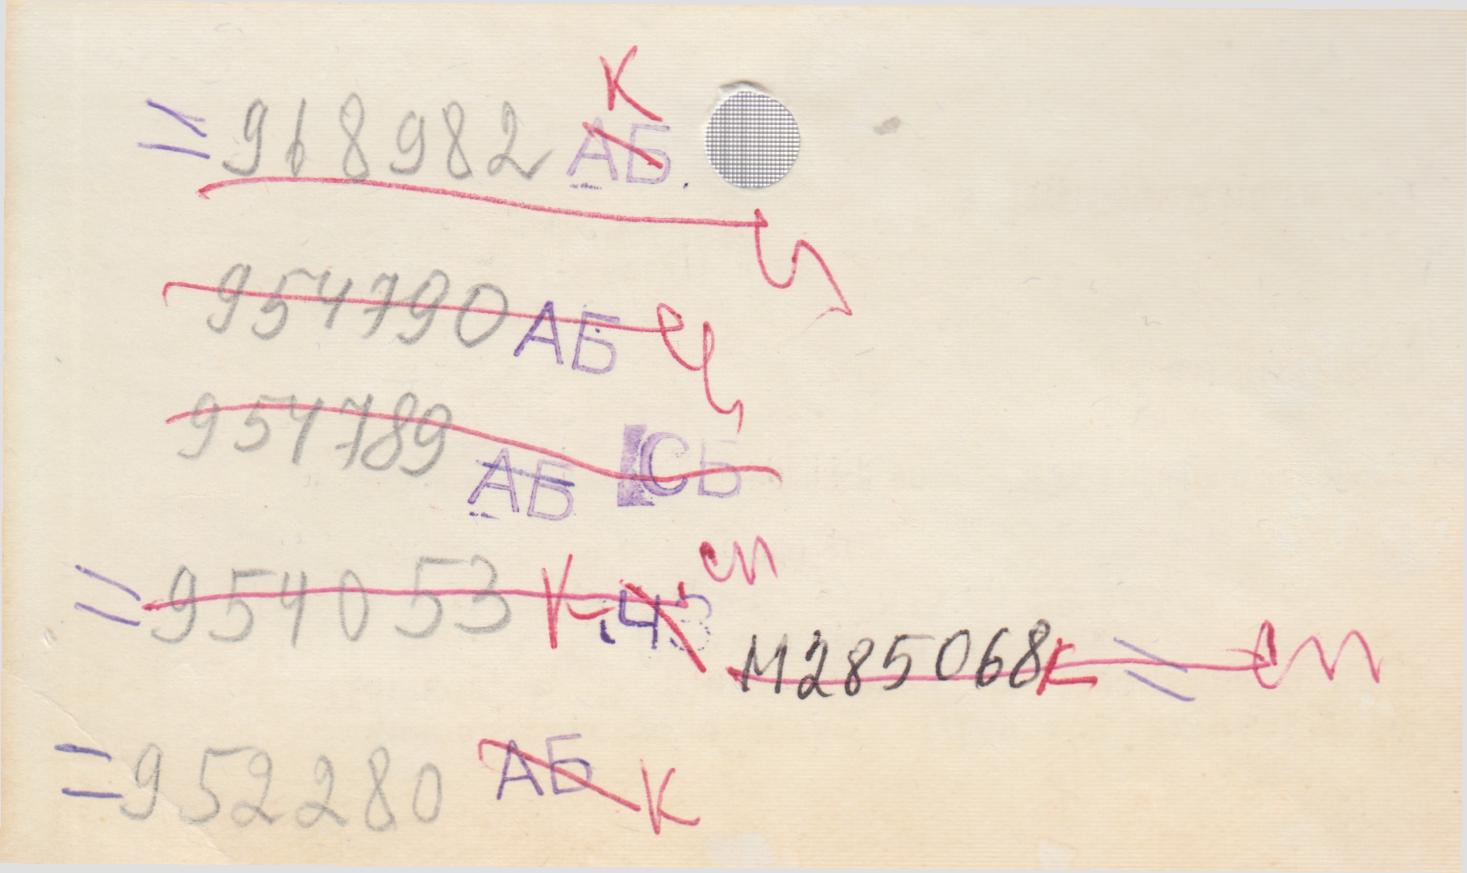 К
= 968982 АБ.
954790 АБ
954789 АБ СБ
= 954053 К-43 сп
М285068К = сп
= 952280 АБ К